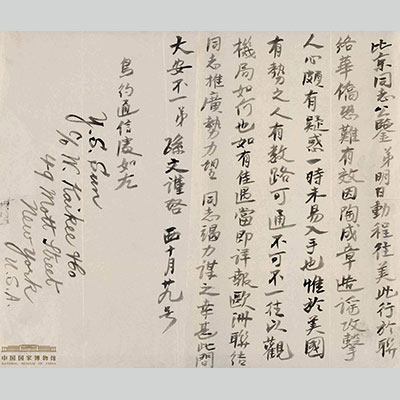 比京同志公鑒弟明日動程往美此行於聯
絡華僑恐難有效因陶成章造謠攻擊
人心頗有疑惑一時未易入手也惟於美國
有勢之人有數路可通不可不一往以觀
機局如何也如有佳遇當即詳報歐洲聯結
同志推廣勢力望 同志竭力謀之幸甚此問
大安不一弟 孫文謹啓 西十月廿九号
鳥約通信處如左
Y. S. Sun
c/o W. Kaikee & Co
49 Mott Street
New York
U.S.A.
中国国家博物馆
NATIONAL MUSEUM OF CHINA